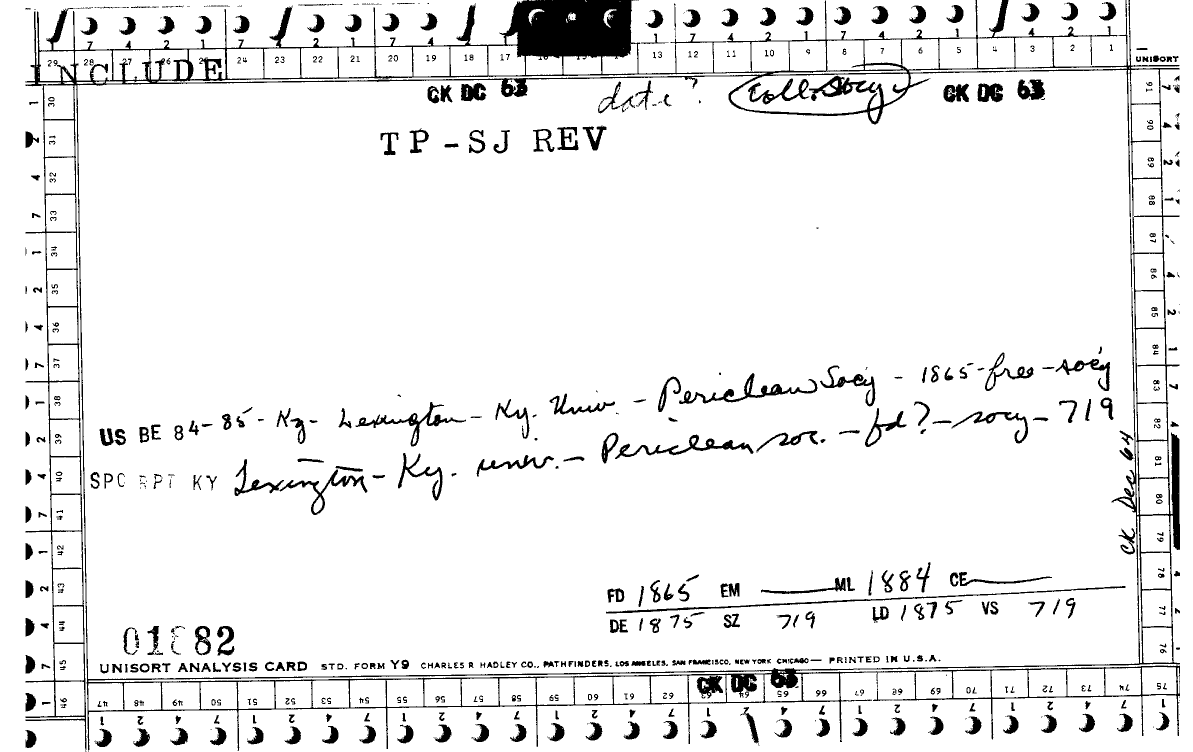 29 28 27 26 25 24 23 22 21 20 19 18 17 13 12 11 10 9 8 7 6 5 4 3 2 1 UNISORT
INCLUDE
CK DC 63 date? Coll. Socy CK DC 63
TP-SJ REV
US BE 84-85 - Ky - Lexington - Ky. Univ. - Periclean Socy - 1865 - free - socy
SPC RPT KY Lexington - Ky. univ. - Periclean soc. - fd? - socy - 719
CK Dec 64
FD 1865 EM — ML 1884 CE —
DE 1875 SZ 719 LD 1875 VS 719
01882
UNISORT ANALYSIS CARD STD. FORM Y9 CHARLES R HADLEY CO., PATHFINDERS, LOS ANGELES, SAN FRANCISCO, NEW YORK CHICAGO — PRINTED IN U.S.A.
CK DC 63
47 48 49 50 51 52 53 54 55 56 57 58 59 60 61 62 63 64 65 66 67 68 69 70 71 72 73 74 75